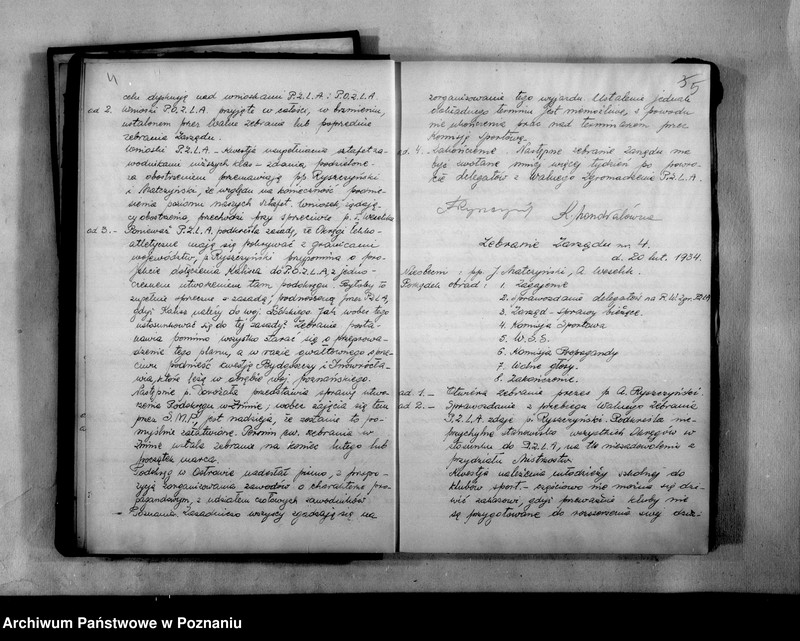 4
celu dyskusję nad wnioskami P.Z.L.A. i P.O.Z.L.A.
ad 2. Wnioski P.O.Z.L.A. przyjęte w całości, w brzmieniu,
ustalonem przez Walne zebranie lub poprzednie
zebrania Zarządu.
Wnioski P.Z.L.A. - kwestja uzupełnienia sztafet za-
wodnikami niższych klas - zdania podzielone -
za obostrzeniem przemawiają pp. Ryszczyński
i Matczyński, ze względu na konieczność podnie-
sienia poziomu naszych sztafet. Wniosek, żądają-
cy obostrzenia, przechodzi przy sprzeciwie p.
ad 3. - Ponieważ P.Z.L.A. podkreśla zasadę, że Okręgi lekko-
atletyczne mają się pokrywać z granicami
województw, p. Ryszczyński przypomina o pro-
jekcie dołączenia Kalisza do P.O.Z.L.A, z jedno-
czesnem utworzeniem tam podokręgu. Byłoby to
zupełnie sprzeczne z zasadą, podnoszoną przez P.Z.L.A,
gdyż Kalisz należy do woj. Łódzkiego. Jak wobec tego
ustosunkować się do tej zasady? Zebranie posta-
nawia pomimo wszystko starać się o przeprowa-
dzenie tego planu, a w razie gwałtownego sprze-
ciwu podnieść kwestję Bydgoszczy i Inowrocła-
wia, które leżą w obrębie woj. poznańskiego.
Następnie p. przedstawia sprawę utwo-
rzenia Podokręgu w Żninie, wobec zajęcia się tem
przez S.M.P., jest nadzieja, że zostanie to po-
myślnie załatwione. Termin zw. zebrania w
Żninie ustala zebranie na koniec lutego lub
początek marca.
Podokręg w Ostrowie nadesłał pismo, z propo-
zycją zorganizowania zawodów o charakterze pro-
pagandowym, z udziałem czołowych zawodników
Poznania. Zasadniczo wszyscy zgadzają się na
5
zorganizowanie tego wyjazdu. Ustalenie jednak
dokładnego terminu jest niemożliwe, z powodu
nieukończenia prac nad terminarzem przez
Komisję Sportową.
ad. 4. - Zakończenie. Następne zebranie Zarządu ma
być zwołane mniej więcej tydzień po powro-
cie delegatów z Walnego Zgromadzenia P.Z.L.A.
K. Chondralówna
Zebranie Zarządu nr 4.
d. 20 lut. 1934.
Nieobecni: pp. J. Matczyński, A. Weselik.
Porządek obrad: 1. Zagajenie
2. Sprawozdanie delegatów na
3. Zarząd - sprawy bieżące.
4. Komisja Sportowa
5. W.S.S.
6. Komisja Propagandy
7. Wolne głosy.
8. Zakończenie.
ad 1. - Otwiera zebranie prezes p. A. Ryszczyński.
ad 2. - Sprawozdanie z przebiegu Walnego Zebrania
P.Z.L.A. zdaje p. Ryszczyński. Podkreśla nie-
przychylne stanowisko wszystkich Okręgów w
stosunku do P.Z.L.A, na tle niezadowolenia z
przydziału Mistrzostw.
Kwestja należenia młodzieży szkolnej do
klubów sport. - częściowo nie można się dzi-
wić zakazowi, gdyż przeważnie kluby nie
są przygotowane do rozszerzenia swej dzia-
Archiwum Państwowe w Poznaniu